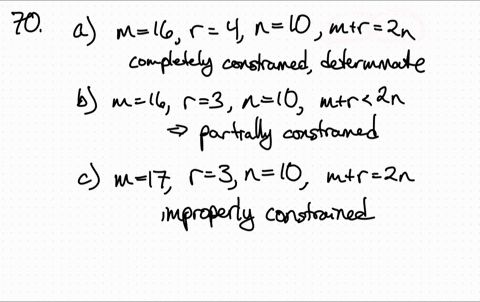 70. a) m=16, r=4, n=10, m+r=2n
completely constrained, determinate
b) m=16, r=3, n=10, m+r<2n
⇒ partially constrained
c) m=17, r=3, n=10, m+r=2n
improperly constrained